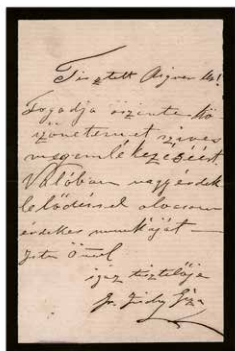 Tisztelt Aigner úr!
Fogadja őszinte kö
szönetemet szives
megemlékezéseért
Valóban nagy érdek
lődéssel olvasom
érdekes munkáját –
igaz tisztelője
gr. Zichy Géza